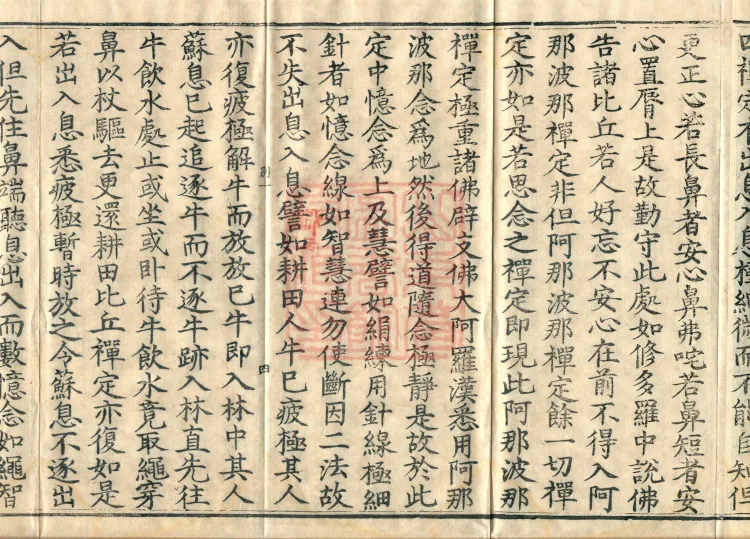 四禪定者出息入息極細微而不能自知但
更正心若長鼻者安心鼻弗咤若鼻短者安
心置脣上是故勤守此處如修多羅中說佛
告諸比丘若人好忘不安心在前不得入阿
那波那禪定非但阿那波那禪定餘一切禪
定亦如是若思念之禪定即現此阿那波那
禪定極重諸佛辟支佛大阿羅漢悉用阿那
波那念為地然後得道隨念極靜是故於此
定中憶念為上及慧譬如絹練用針線極細
針者如憶念線如智慧連勿使斷因二法故
不失出息入息譬如耕田人牛已疲極其人
亦復疲極解牛而放放已牛即入林中其人
蘇息已起追逐牛而不逐牛跡入林直先往
牛飲水處止或坐或卧待牛飲水竟取繩穿
鼻以杖驅去更還耕田比丘禪定亦復如是
若出入息悉疲極暫時放之令蘇息不逐出
入但先住鼻端聽息出入而數憶念如繩智
別一
四